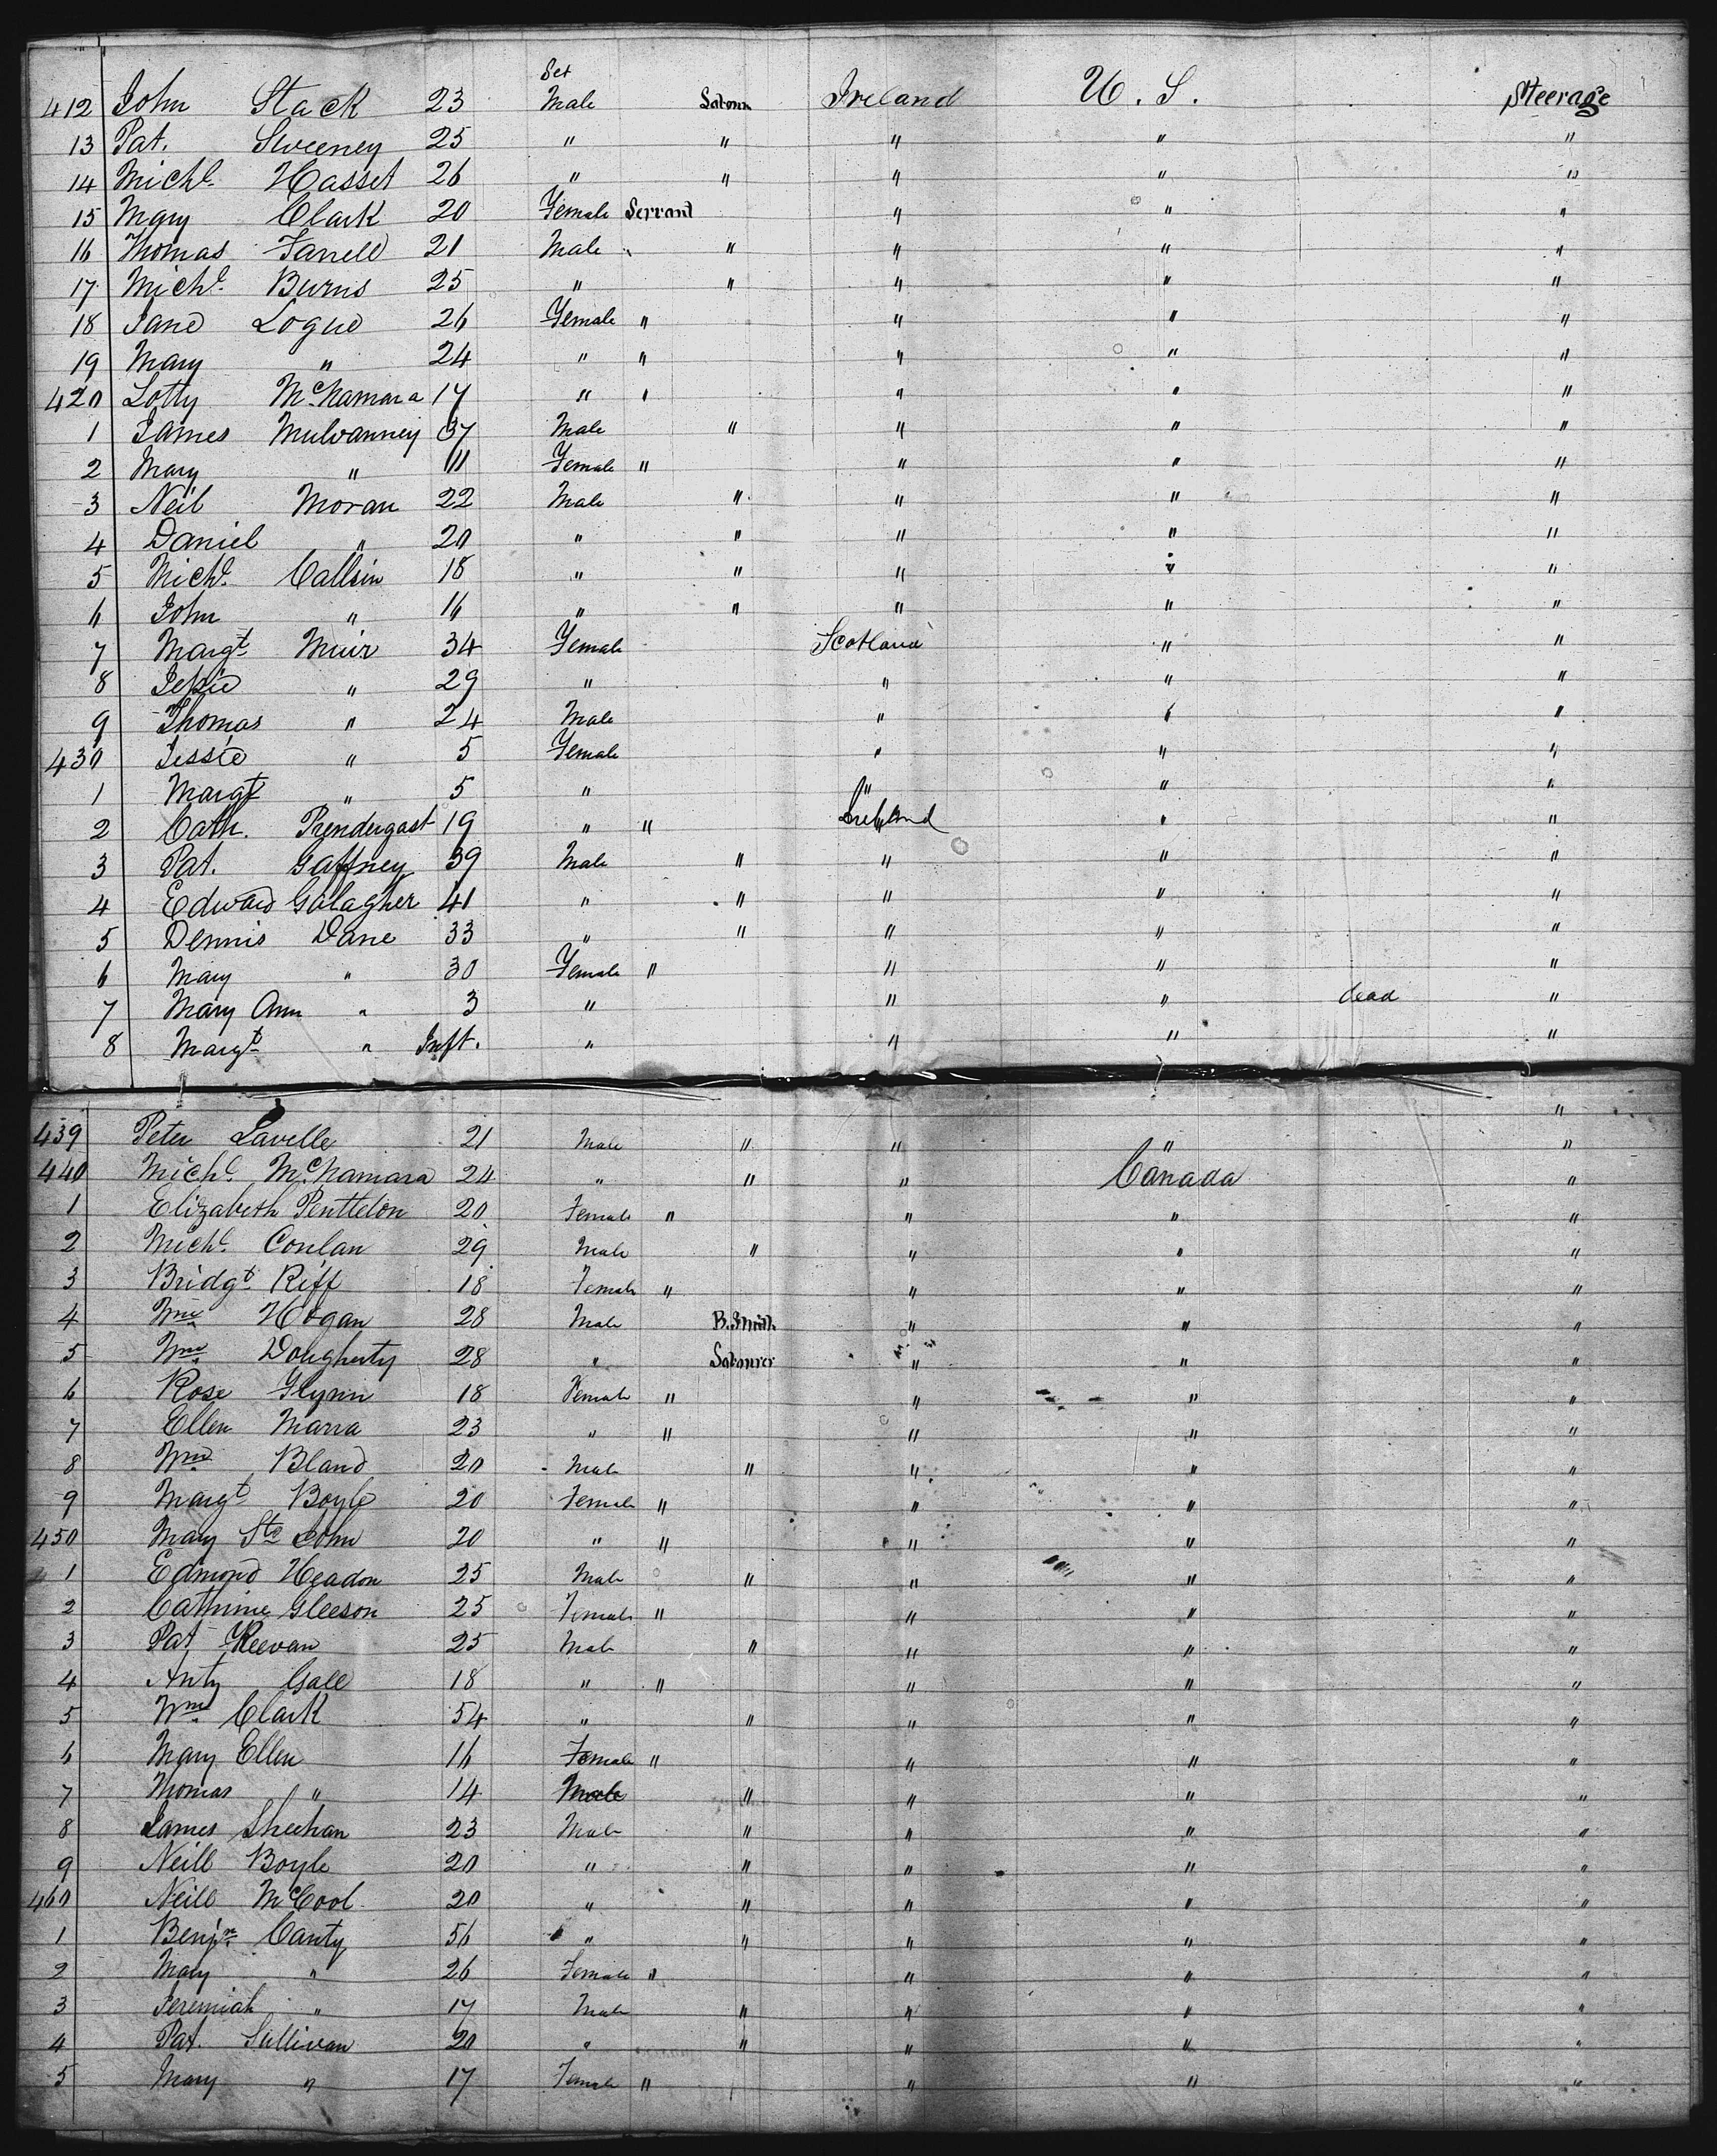 Sex
412 John Stack 23 Male Labourer Ireland U. S. Steerage
13 Pat. Sweeney 25 " " " " "
14 Michl. Hasset 26 " " " " "
15 Mary Clark 20 Female Servant " " "
16 Thomas Farrell 21 Male " " " "
17 Michl. Burns 25 " " " " "
18 Jane Logue 26 Female " " " "
19 Mary " 24 " " " " "
420 Lotty McNamara 17 " " " " "
1 James Mulvanney 37 Male " " " "
2 Mary " 11 Female " " " "
3 Neil Moran 22 Male " " " "
4 Daniel " 20 " " " " "
5 Michl. Callsin 18 " " " " "
6 John " 16 " " " " "
7 Margt. Muir 34 Female Scotland " "
8 Jessie " 29 " " " "
9 Thomas " 24 Male " " "
430 Jessie " 5 Female " " "
1 Margt " 5 " " " "
2 Cath. Prendergast 19 " " Ireland " "
3 Pat. Gaffney 39 Male " " " "
4 Edward Galagher 41 " " " " "
5 Dennis Dane 33 " " " " "
6 Mary " 30 Female " " " "
7 Mary Ann " 3 " " " dead "
8 Margt. " Inft. " " " "
"
439 Peter Lavelle 21 Male " " " "
440 Michl. McNamara 24 " " " Canada "
1 Elizabeth Penttelon 20 Female " " " "
2 Michl. Conlan 29 Male " " " "
3 Bridgt. Riff 18 Female " " " "
4 Wm. Hogan 28 Male B.Smith " " "
5 Wm. Dougherty 28 " Labourer " " "
6 Rose Glynn 18 Female " " " "
7 Ellen Marra 23 " " " " "
8 Wm. Bland 20 Male " " " "
9 Margt. Boyle 20 Female " " " "
450 Mary St. John 20 " " " " "
1 Edmond Headon 25 Male " " " "
2 Cathrine Gleeson 25 Female " " " "
3 Pat Keevan 25 Male " " " "
4 Anty Gall 18 " " " " "
5 Wm. Clark 54 " " " " "
6 Mary Ellen 16 Female " " " "
7 Thomas " 14 Male " " " "
8 James Sheehan 23 Male " " " "
9 Neill Boyle 20 " " " " "
460 Neill McCool 20 " " " " "
1 Benjn. Canty 56 " " " " "
2 Mary " 26 Female " " " "
3 Jeremiah " 17 Male " " " "
4 Pat. Sullivan 20 " " " " "
5 Mary " 17 Female " " " "